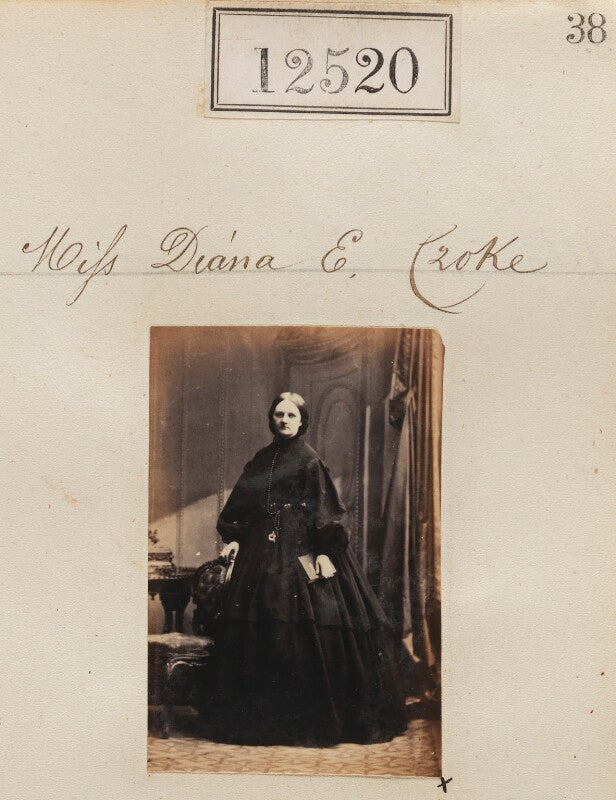 38
12520
Miss Diána E. Croke
x